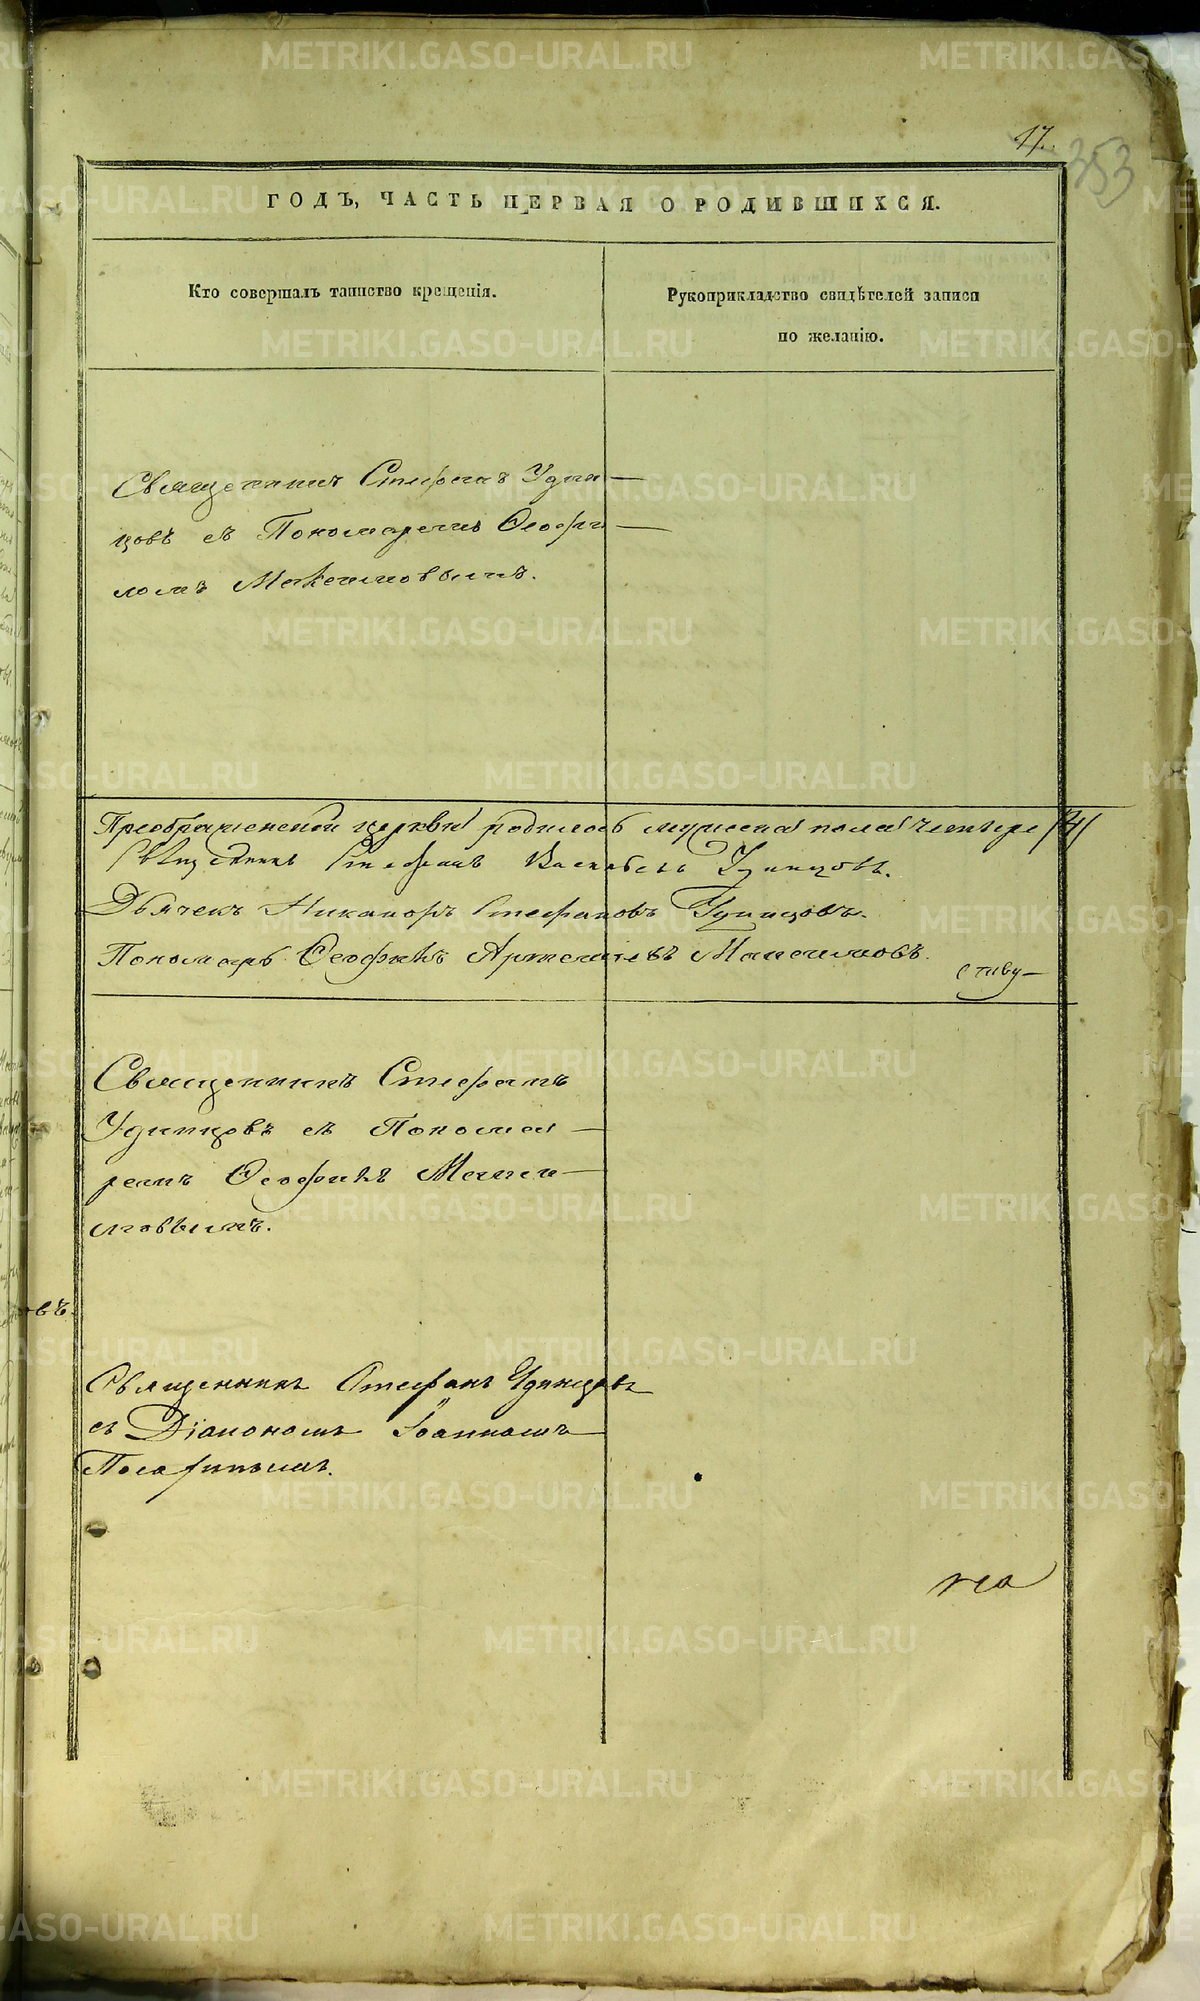 17.
353
ГОДЪ, ЧАСТЬ ПЕРВАЯ О РОДИВШИХСЯ.
Кто совершалъ таинство крещенія.
Рукоприкладство свидѣтелей записи
по желанію.
Священникъ Стефанъ Удин
цовъ съ Пономаремъ Ѳеофи
ломъ Максимовымъ.
Преображенской церкви родилось мужеска пола четыре /4/
Священникъ Стефанъ Васильевъ Удинцовъ.
Дьячекъ Никаноръ Стефановъ Удинцовъ.
Пономарь Ѳеофилъ Артемьевъ Максимовъ.
Священникъ Стефанъ
Удинцовъ съ Понома
ремъ Ѳеофил Макси
мовымъ.
овъ.
Священникъ Стефанъ Удинцовъ
съ Діакономъ Іоанномъ
METRIKI.GASO-URAL.RU